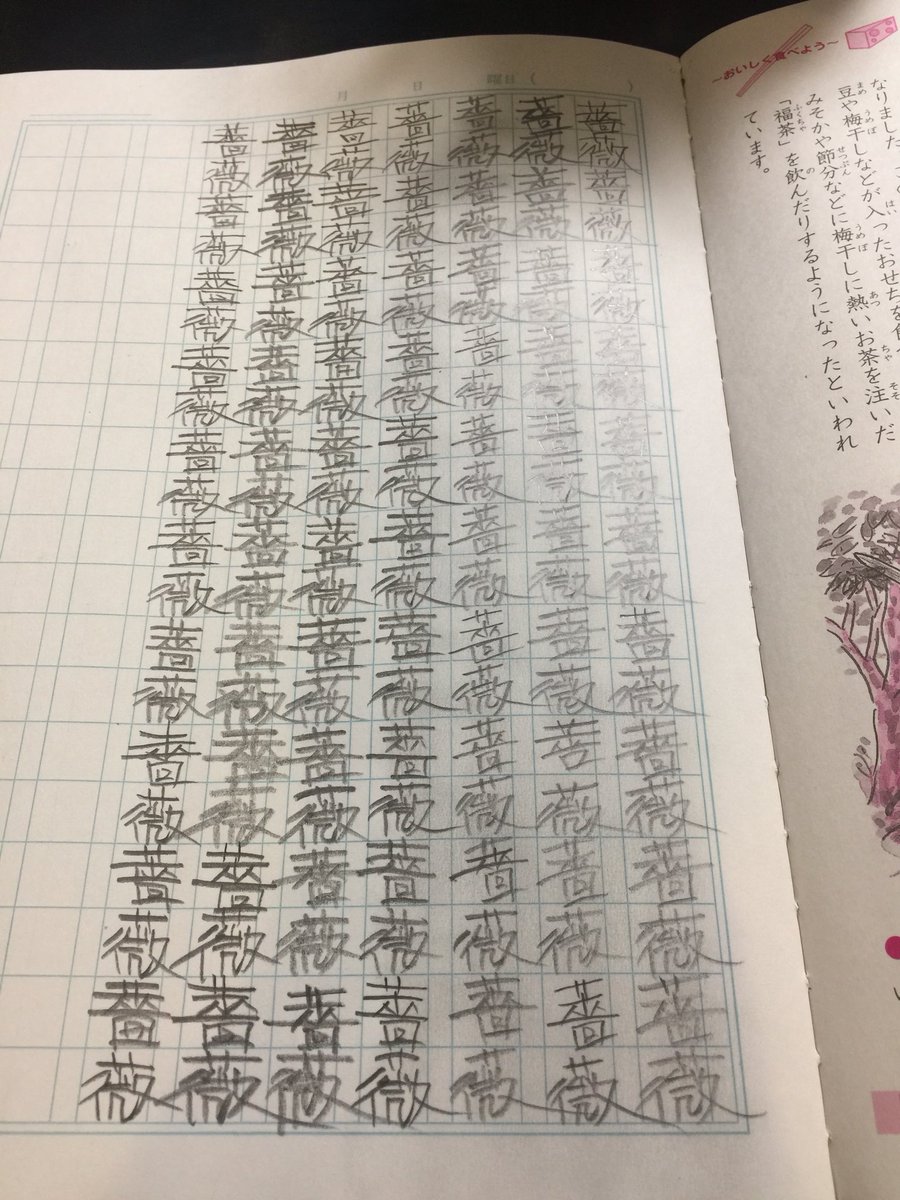 〜おいしく食べよう〜
なりました
豆や梅干しなどが入ったおせちを
みそかや節分などに梅干しに熱いお茶を注いだ
「福茶」を飲んだりするようになったといわれ
ています。
月 日 曜日 ( )
薔薇薔薇薔薇薔薇薔薇薔薇薔薇薔薇薔薇薔薇
薔薇薔薇薔薇薔薇薔薇薔薇薔薇薔薇薔薇薔薇
薔薇薔薇薔薇薔薇薔薇薔薇薔薇薔薇薔薇薔薇
薔薇薔薇薔薇薔薇薔薇薔薇薔薇薔薇薔薇薔薇
薔薇薔薇薔薇薔薇薔薇薔薇薔薇薔薇薔薇薔薇
薔薇薔薇薔薇薔薇薔薇薔薇薔薇薔薇薔薇薔薇
薔薇薔薇薔薇薔薇薔薇薔薇薔薇薔薇薔薇薔薇